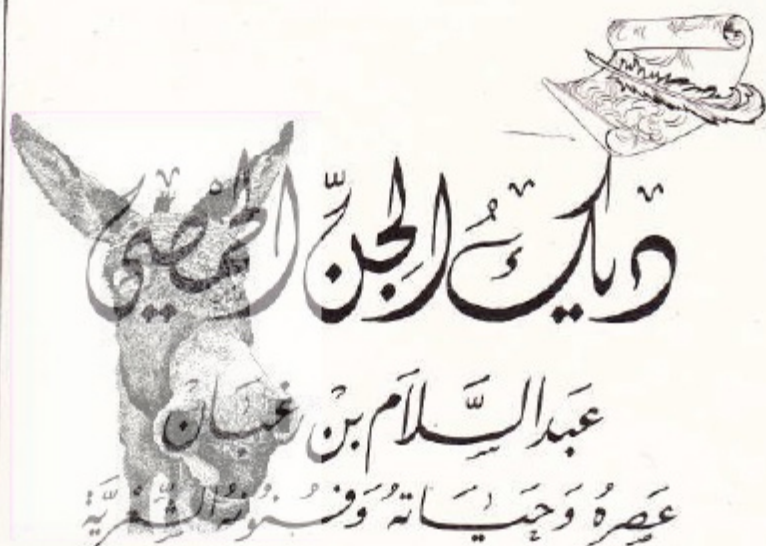 ديكُ الجنِّ الحمْصي
عَبد السَّلاَم بن رغبَان
عَصرُهُ وَحيَاتهُ وَفُنُونُهُ الشِّعْريَّة